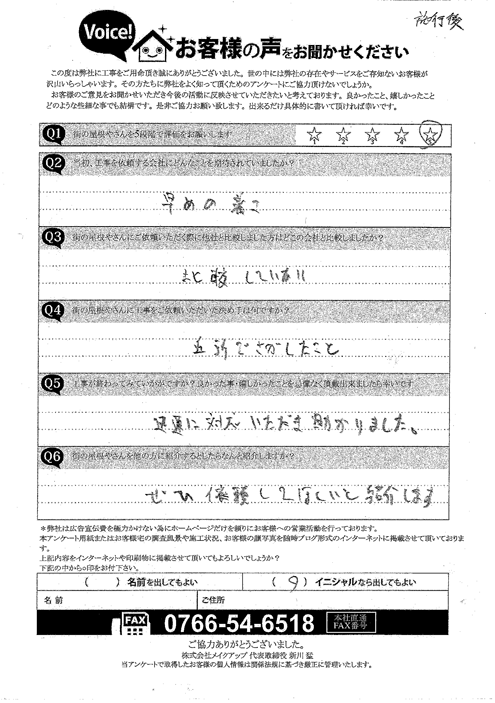 施行後
Voice!
お客様の声をお聞かせください
この度は弊社に工事をご用命頂き誠にありがとうございました。世の中には弊社の存在やサービスをご存知ないお客様が
沢山いらっしゃいます。その方たちに弊社をよく知って頂くためのアンケートにご協力頂けないでしょうか。
お客様のご意見をお聞かせいただき今後の活動に反映させていただきたいと考えております。良かったこと、嬉しかったこと
どのような些細な事でも結構です。是非ご協力お願い致します。出来るだけ具体的に書いて頂ければ幸いです。
Q1 街の屋根やさんを5段階で評価をお願いします ☆ ☆ ☆ ☆ ☆
Q2 当初、工事を依頼する会社にどんなことを期待されていましたか?
早めの着工
Q3 街の屋根やさんにご依頼いただく際に他社と比較しました方はどこの会社と比較しましたか?
比較していない
Q4 街の屋根やさんに工事をご依頼いただいた決め手は何ですか?
近所でさがしたこと
Q5 工事が終わってみていかがですか?良かった事・嬉しかったことを忌憚なく頂戴出来ましたら幸いです
迅速に対応いただき助かりました。
Q6 街の屋根やさんを他の方に紹介するとしたらなんと紹介しますか?
ぜひ依頼してほしいと紹介します
*弊社は広告宣伝費を極力かけない為にホームページだけを頼りにお客様への営業活動を行っております。
本アンケート用紙またはお客様宅の調査風景や施工状況、お客様の顔写真を随時ブログ形式のインターネットに掲載させて頂いております。
上記内容をインターネットや印刷物に掲載させて頂いてもよろしいでしょうか?
下記の中から○印をお付下さい。
( ) 名前を出してもよい ( ○ ) イニシャルなら出してもよい
名前 ご住所
FAX 0766-54-6518 本社直通FAX番号
ご協力ありがとうございました。
株式会社メイクアップ 代表取締役 新川 猛
当アンケートで取得したお客様の個人情報は関係法規に基づき厳正に管理いたします。